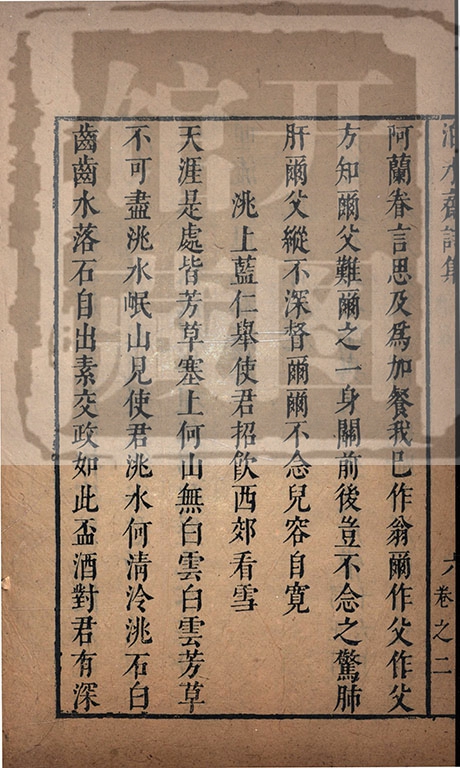 阿蘭眷言思及爲加餐我已作翁爾作父作父
方知爾父難爾之一身關前後豈不念之驚肺
肝爾父縱不深督爾爾不念兒容自寬
洮上藍仁舉使君招飲西郊看雪
天涯是處皆芳草塞上何山無白雲白雲芳草
不可盡洮水岷山見使君洮水何清泠洮石白
齒齒水落石自出素交政如此盃酒對君有深
卷之二